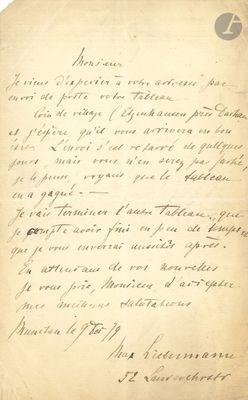 Monsieur
Je viens d'expedier à votre adresse par
envoi de poste votre tableau
Coin de village (Etzenhausen près Dachau
et j'espère qu'il vous arrivera en bon
état. L'envoi s'est retardé de quelques
jours, mais vous n'en serez pas faché,
je le pense, voyant que le tableau
en a gagné. —
Je vais terminer l'autre tableau, que
je compte avoir fini en peu de temps
que je vous enverrai aussitôt après.
En attendant de vos nouvelles
je vous prie, Monsieur, d'accepter
mes meilleures salutations
Munich le 9 79
Max Liebermann
52